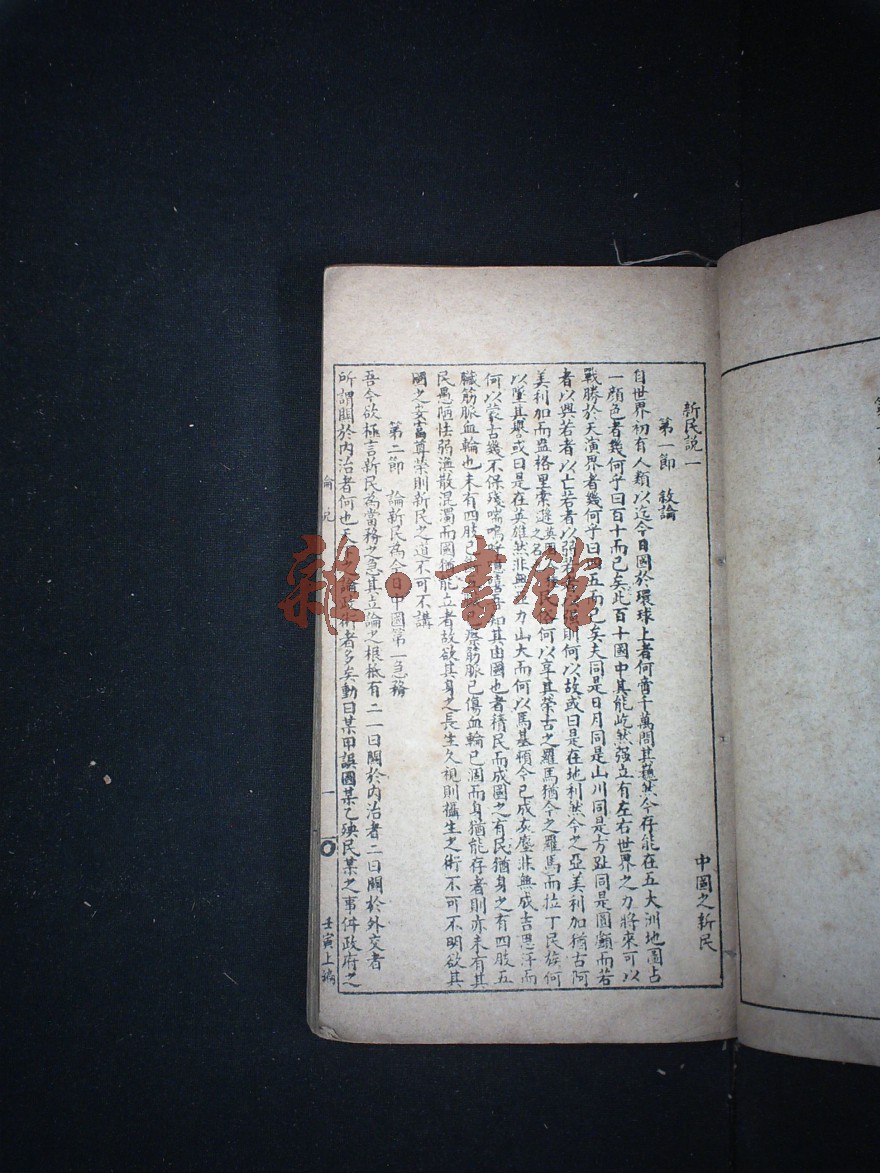 新民說一
中國之新民
第一節　敘論
自世界初有人類以迄今日國於環球上者何啻千萬問其巋然今存能在五大洲地圖占
一顏色者幾何乎曰百十而已矣此百十國中其能屹然强立有左右世界之力將來可以
戰勝於天演界者幾何乎曰四五而已矣夫同是日月同是山川同是方趾同是圓顱而若
者以興若者以亡若者以弱若者以强則何以故或曰是在地利然今之亞美利加猶古阿
美利加而盎格里索遜英國人種之名民族何以享其榮古之羅馬猶今之羅馬而拉丁民族何
以墜其譽或曰是在英雄然非無亞力山大而何以馬基頓今已成灰塵非無成吉思汗而
何以蒙古幾不保殘喘嗚呼知其由國也者積民而成國之有民猶身之有四肢五
臟筋脈血輪也未有四肢已筋脈已傷血輪已涸而身猶能存者則亦未有其
民愚陋怯弱渙散混濁而國猶能立者故欲其身之長生久視則攝生之術不可不明欲其
國之安富尊榮則新民之道不可不講
第二節　論新民為今日中國第一急務
吾今欲極言新民為當務之急其立論之根柢有二一曰關於內治者二曰關於外交者
所謂關於內治者何也天下之論政術者多矣動曰某甲誤國某乙殃民某之事件政府之
論說
一
壬寅上編
雜·書館